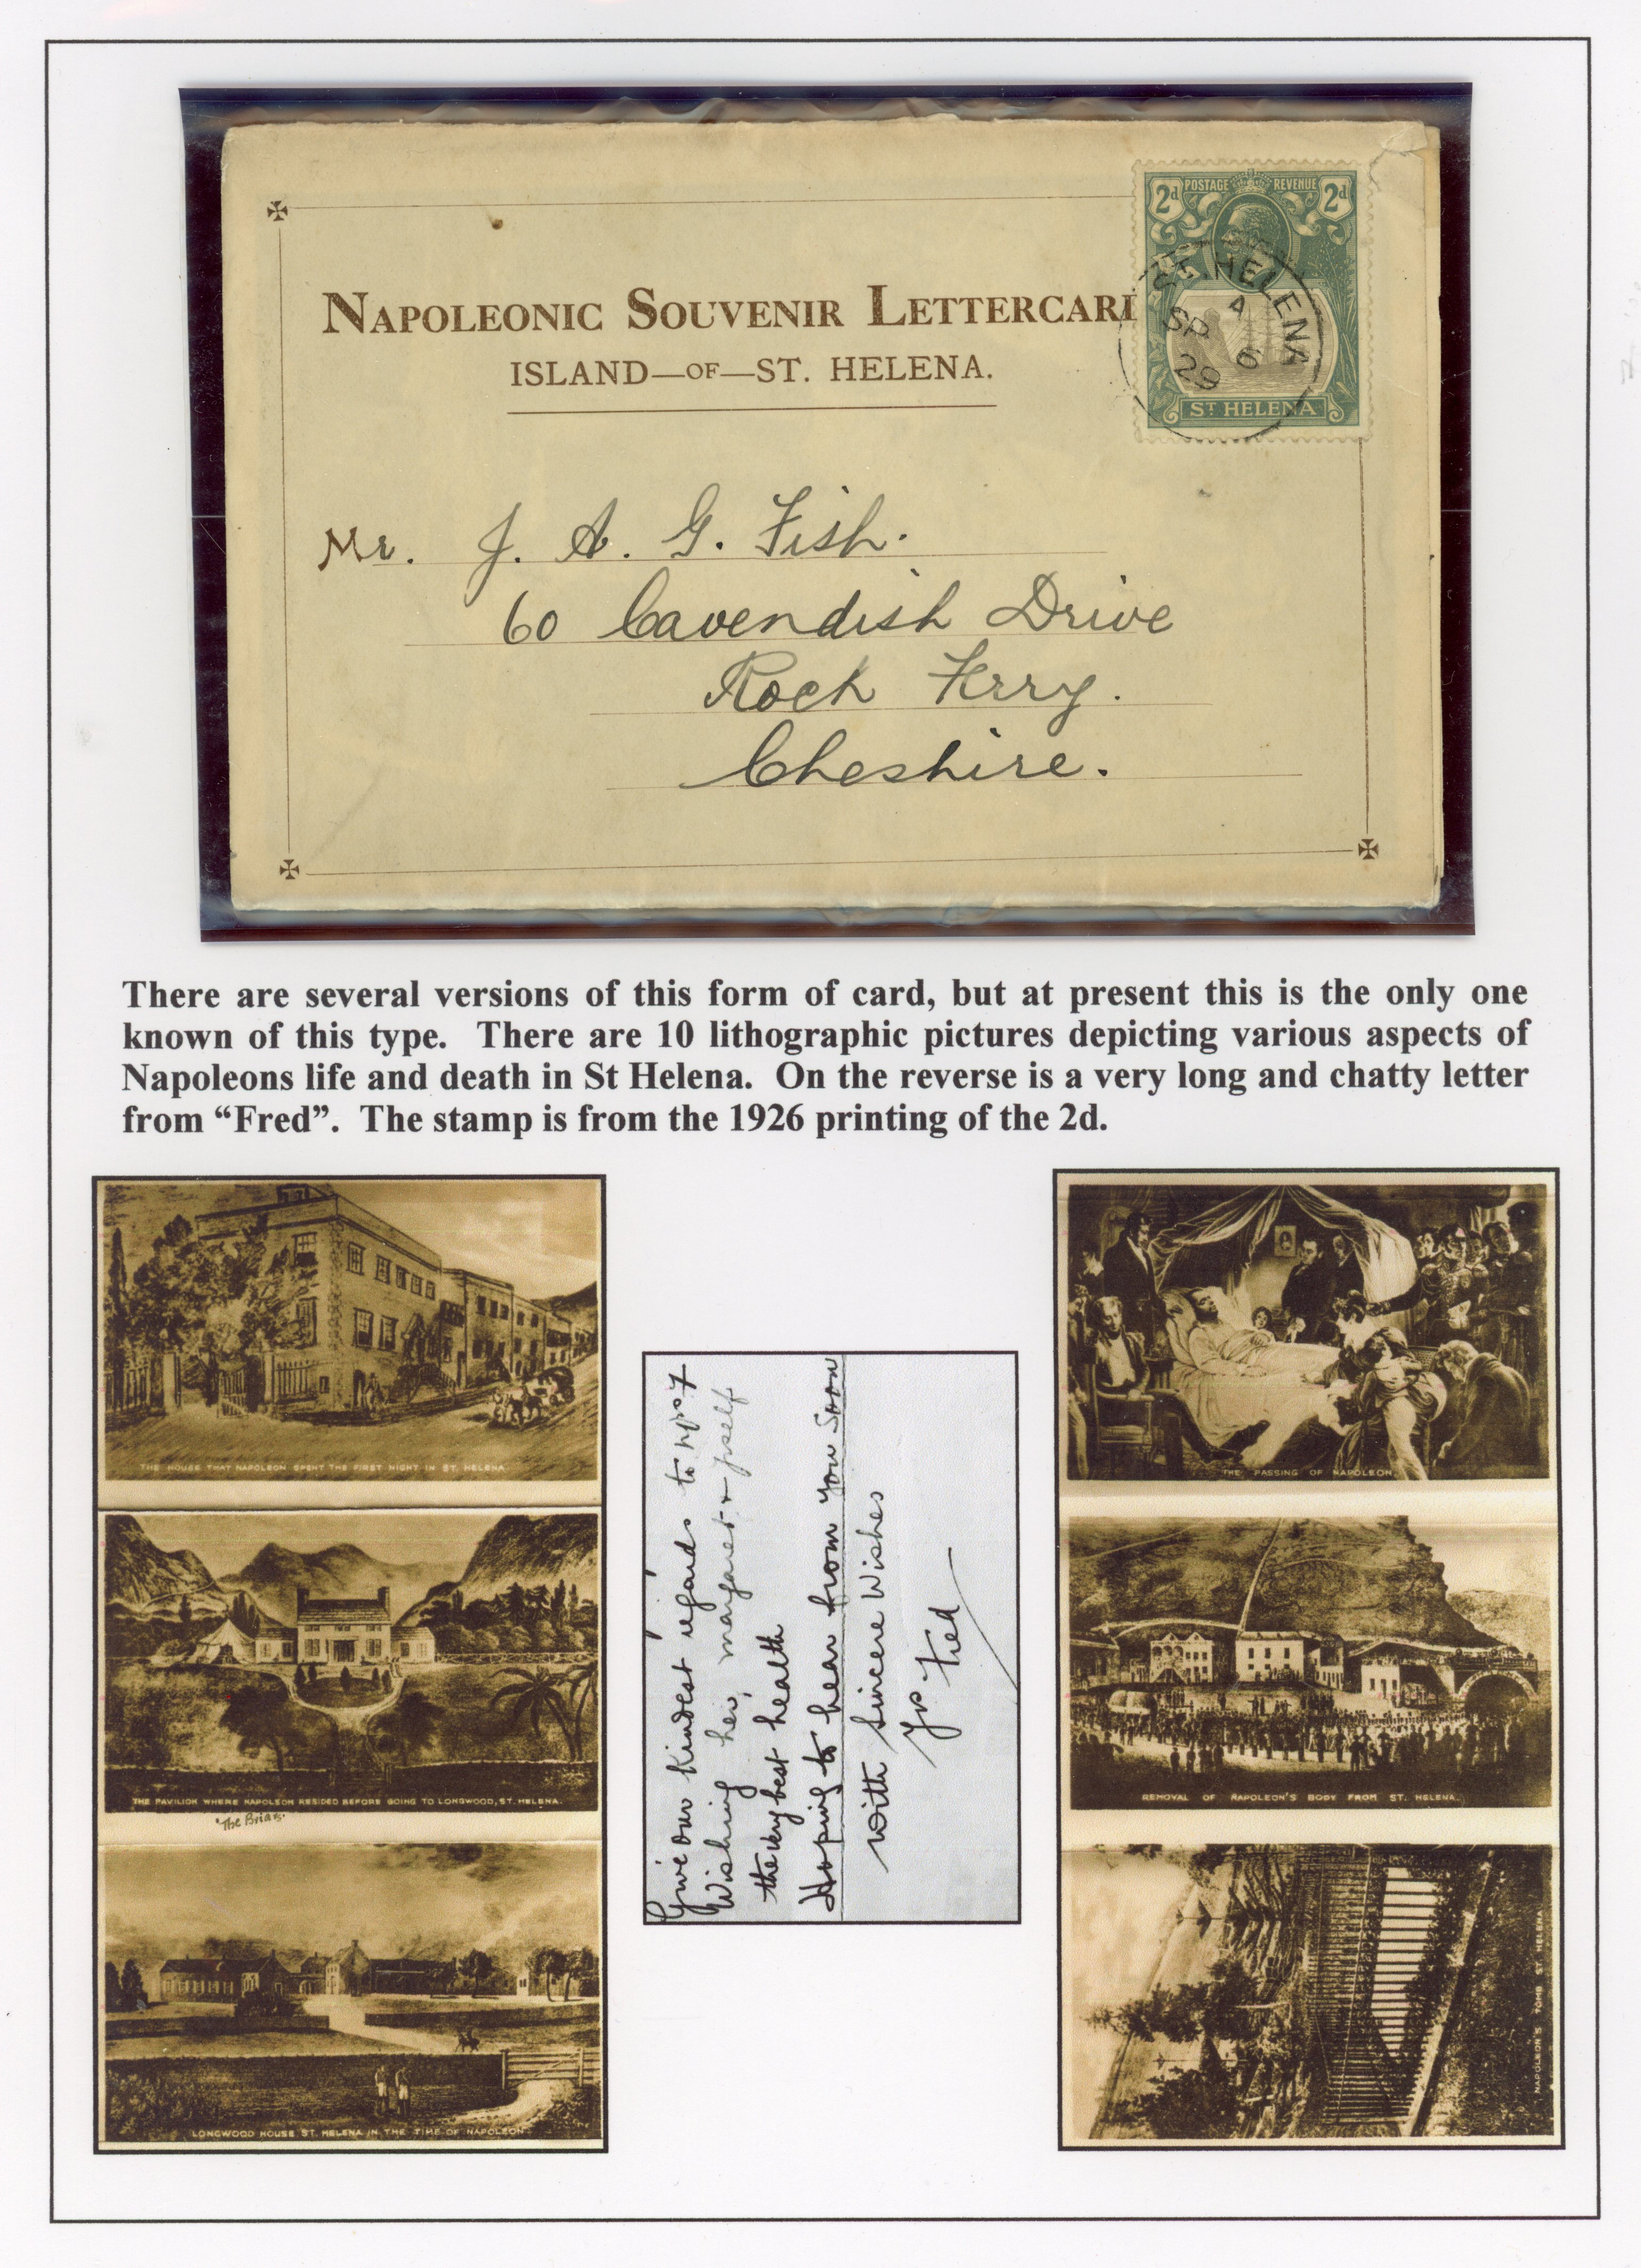 NAPOLEONIC SOUVENIR LETTERCARD
ISLAND—OF—ST. HELENA.
POSTAGE REVENUE
2d 2d
ST. HELENA
A
SP 6
29
ST HELENA
Mr. J. A. G. Fish.
60 Cavendish Drive
Rock Ferry.
Cheshire.
There are several versions of this form of card, but at present this is the only one
known of this type. There are 10 lithographic pictures depicting various aspects of
Napoleons life and death in St Helena. On the reverse is a very long and chatty letter
from “Fred”. The stamp is from the 1926 printing of the 2d.
THE HOUSE THAT NAPOLEON SPENT THE FIRST NIGHT IN ST. HELENA.
THE PAVILION WHERE NAPOLEON RESIDED BEFORE GOING TO LONGWOOD, ST. HELENA.
"The Briars."
LONGWOOD HOUSE ST. HELENA IN THE TIME OF NAPOLEON
Give our kindest regards to
Wishing her, margaret &
the very best health
Hoping to hear from you Soon
with Sincere Wishes
Yrs Fred
THE PASSING OF NAPOLEON.
REMOVAL OF NAPOLEON'S BODY FROM ST. HELENA.
NAPOLEON'S TOMB ST HELENA